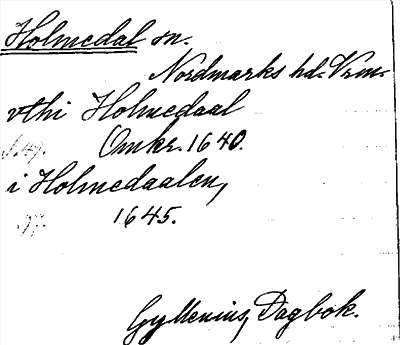 Holmedal sn.
Nordmarks hd. Vrm.
vthi Holmedaal
s. 47. Omkr. 1640.
i Holmedaalen,
1645.
Gyllenius, Dagbok.